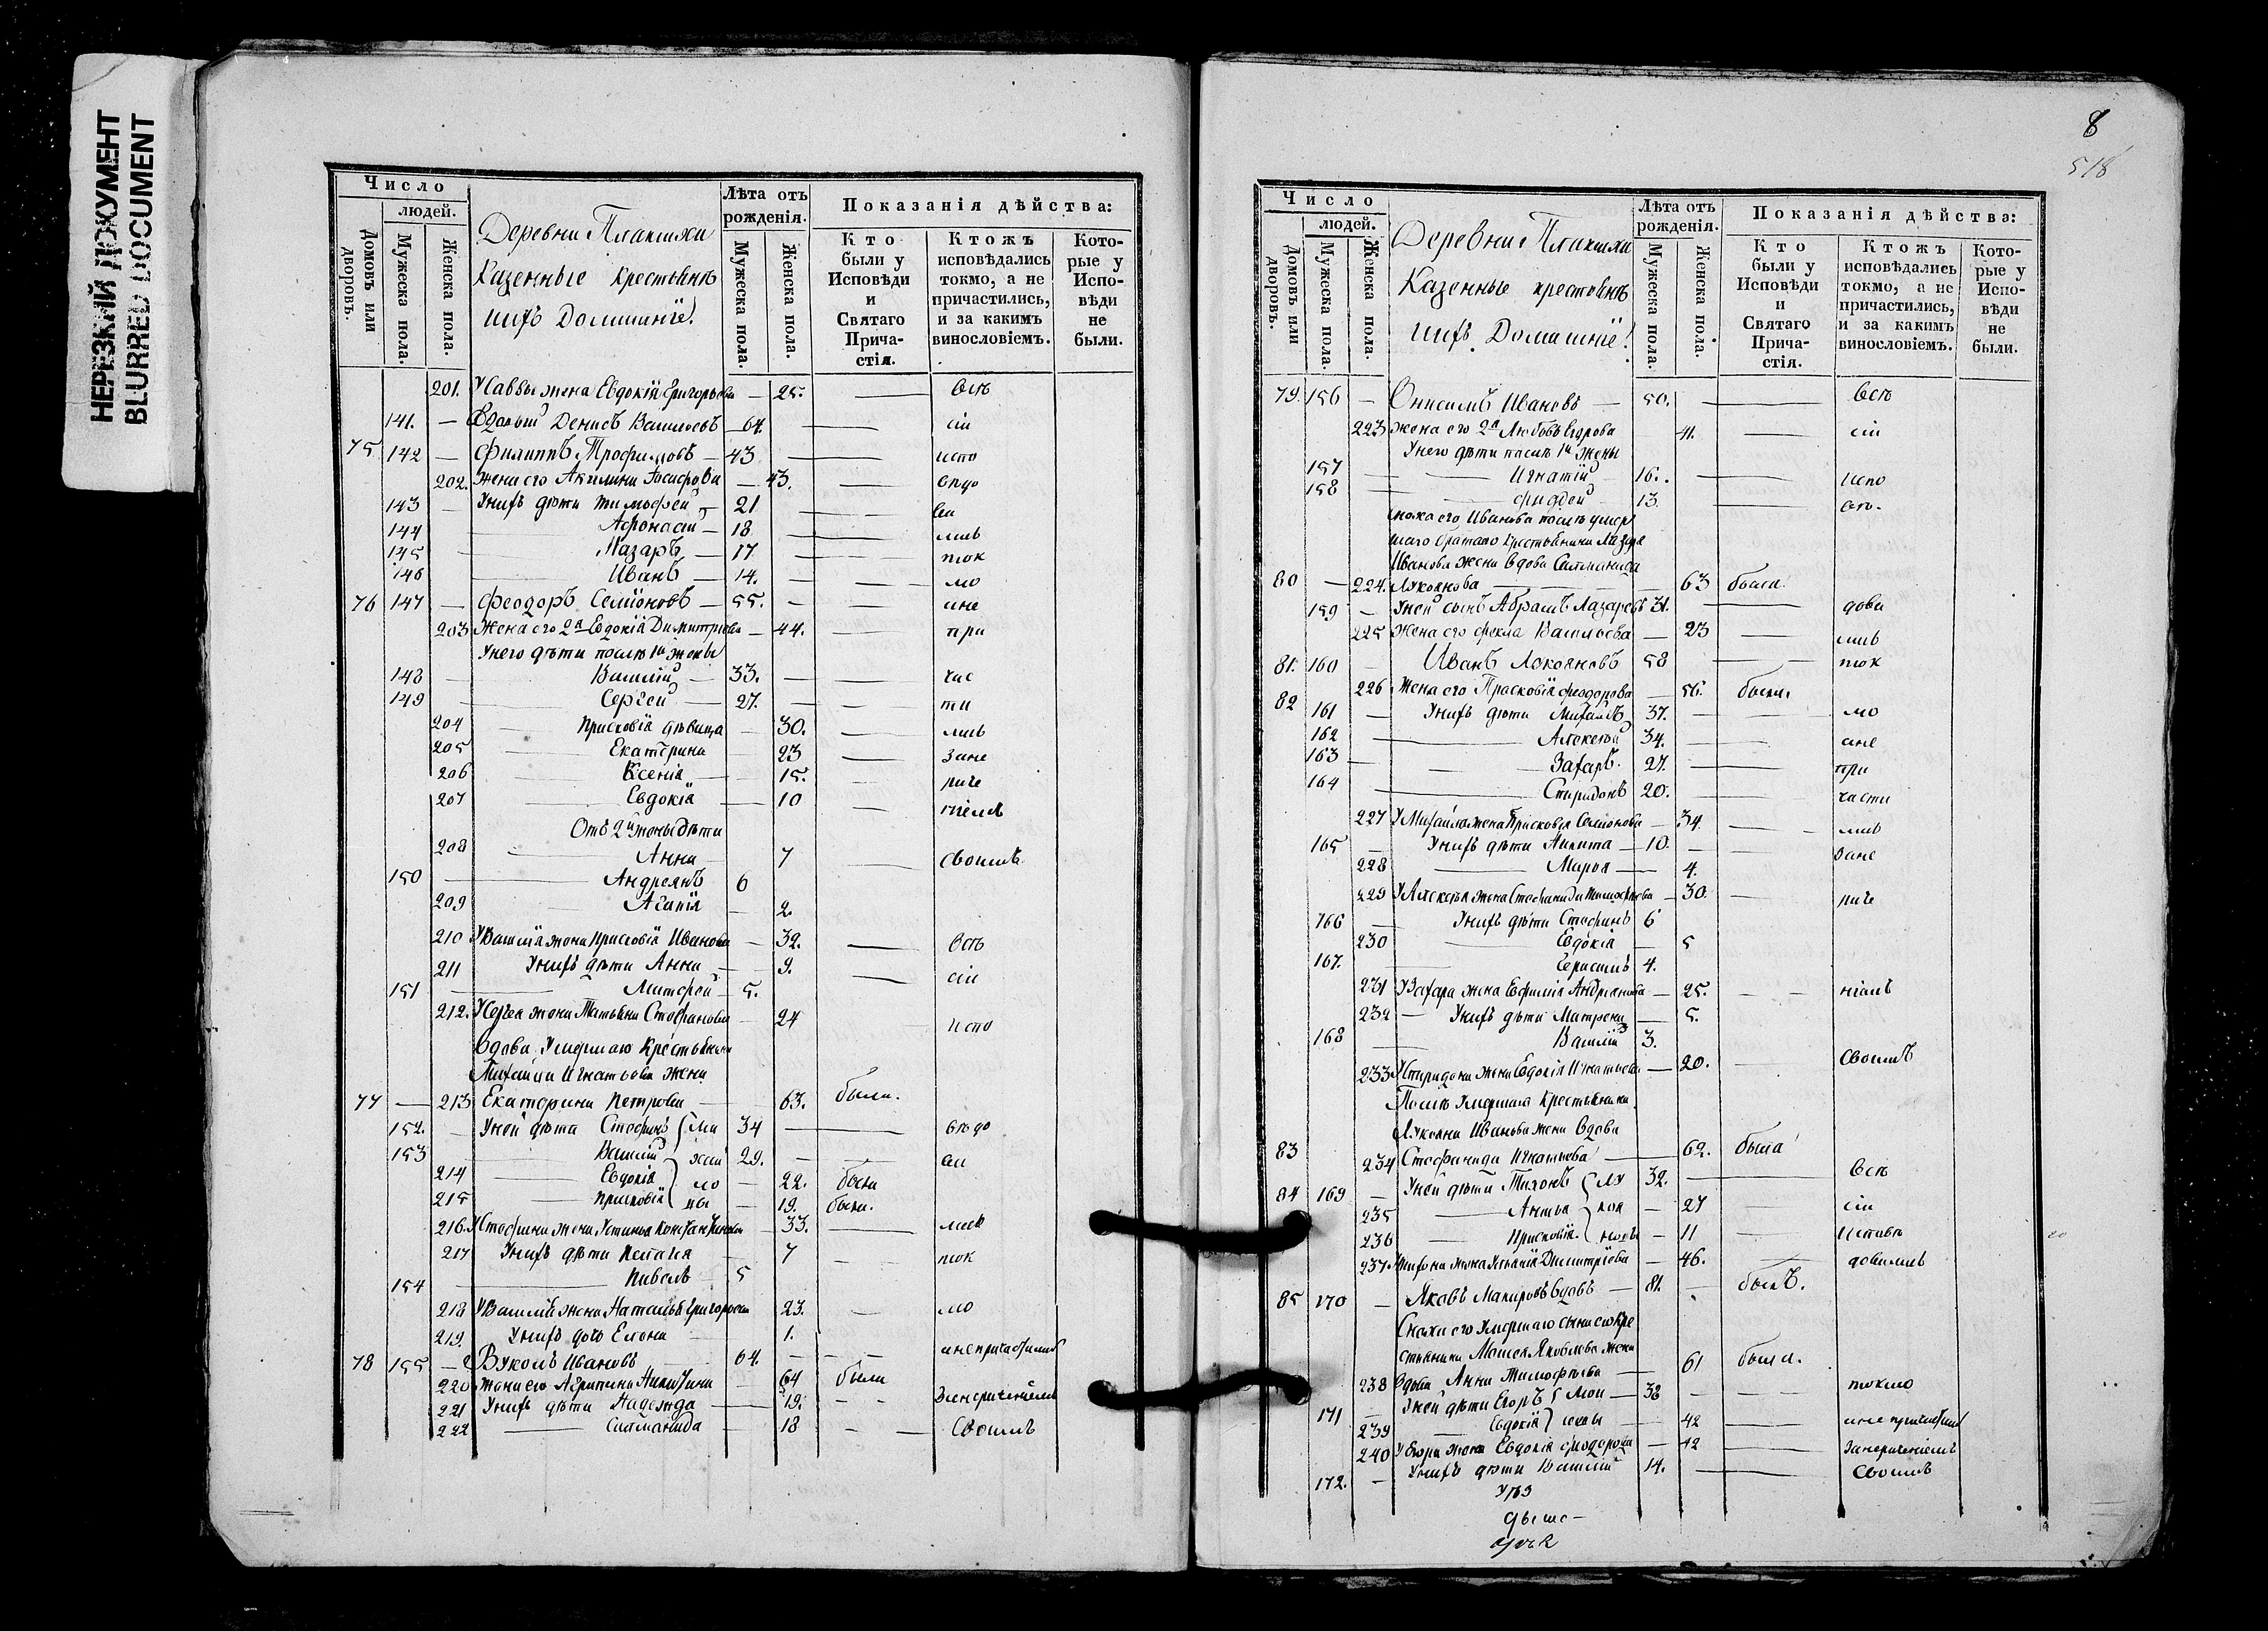 НЕРЕЗКИЙ ДОКУМЕНТ
BLURRED DOCUMENT
Число
людей.
Домовъ или дворовъ.
Мужеска пола.
Женска пола.
Деревни Плакшихи
Казенные крестьянѣ
ихъ Домашніе.
Лѣта отъ рожденія.
Мужеска пола.
Женска пола.
Показанія дѣйства:
Кто были у Исповѣди и Святаго Причастія.
Ктожъ исповѣдались токмо, а не причастились, и за какимъ винословіемъ.
Которые у Исповѣди не были.
201. У Саввы жена Евдокія Григорьева — 25. — всѣ
141. — Вдовый Денисъ Васильевъ — 64. — сіи
75 142 — Филиппъ Трофимовъ — 43 — испо
202. Жена его Акилина — 43. — вѣдо
143 — У нихъ дѣти Тимофей — 21 —
144 Афонасій — 18 — лись
145 Лазарь — 17 — ток
146 Иванъ — 14. — мо
76 147 — Феодоръ Семіоновъ — 55. — ане
203 Жена его 2я Евдокія Димитріева — 44. — при
У него дѣти послѣ 1й жены
148 — Василій — 33. — час
149 — Сергей — 27. — ти
204 Прасковія дѣвица — 30. — лись
205 Екатерина 23 зане
206 Ксенія — 15. — рѣче
207 Евдокія — 10 — ніемъ
Отъ 2й жены дѣти
208 Анна — 7 — своимъ
150 Андреянъ 6
209 Агапія — 2.
210 У Василія жена Прасковія Иванова — 32. — всѣ
211 У нихъ дѣти Анна — 9. — сіи
151 Митрофей — 5.
212. У Сергея жена Татьяна Стефанова — 24 — испо
Вдова Умершаго Крестьянина
Михаила Игнатьева жена
77 — 213 Екатерина Петрова — 63. была.
152. — У ней дѣти Стефанъ 34 — вѣдо
153 Василій 29. —
214 Евдокія — 22. была
215 Прасковія — 19. была.
216. У Стефана жена Устинья Константинова — 33. — лись
217 У нихъ дѣти Пелагея — 7 — ток
154 Павелъ 5
218 У Василія жена Наталья Григорьева 23. — мо
219. У нихъ дочь Елена 1.
78 155 — Вуколъ Ивановъ 64. — ане причастились
220 Жена его Агрипина Никитина — 64 была
221 У нихъ дѣти Надежда — 19. — занереченіемъ
222 — Саламанида — 18 — Своимъ
8
518
Число
людей.
Домовъ или дворовъ.
Мужеска пола.
Женска пола.
Деревни Плакшихи
Казенные крестьянѣ
ихъ Домашніе!
Лѣта отъ рожденія.
Мужеска пола.
Женска пола.
Показанія дѣйства:
Кто были у Исповѣди и Святаго Причастія.
Ктожъ исповѣдались токмо, а не причастились, и за какимъ винословіемъ.
Которые у Исповѣди не были.
79. 156 — Онисимъ Ивановъ — 50. — всѣ
223 жена его 2я Любовь Егорова 41. — сіи
У него дѣти послѣ 1й жены
157 — Игнатій 16. — испо
158 — Фаддей 13. —
сноха его Иванова послѣ умер
шаго брата его Крестьянина Лазаря
Иванова жена вдова Саламанида
80 — 224. Лукоянова — 63 была
159 — У ней сынъ Абрамъ Лазаревъ 31. — дова
225 Жена его Фекла Васильева — 23 — лись
81. 160 — Иванъ Лукояновъ 58 — ток
82 226 Жена его Прасковія Феодорова — 56. была.
161 — У нихъ дѣти Михаилъ 37. — мо
162 — Алексей 34. — ане
163 — Захаръ. 27. — при
164 — Спиридонъ 20. — части
227 У Михаила жена Прасковія Семіонова — 34. — лись
165 — У нихъ дѣти Никита — 10. — зане
228 Марья — 4.
229 У Алексея жена Стефанида Тимофеева — 30. — рѣче
166 — У нихъ дѣти Стефанъ 6
230 Евдокія — 5
167. Герасимъ 4.
231 У Захара жена Евфимія Андреянова — 25. — ніемъ
232 — У нихъ дѣти Матрена — 5.
168 — Василій 3.
233 У Спиридона жена Евдокія Игнатьева — 20. — Своимъ
Послѣ Умершаго Крестьянина
Лукояна Иванова жена вдова
83 234 Стефанида Игнатьева — 62. была
84 169 — У ней дѣти Тихонъ 32. — всѣ
235 — Анна — 27 — сіи
236 — Прасковія. — 11 — исповѣ
237 У Тихона жена Ульянія Димитріева — 46. — довались
85 170 — Яковъ Макаровъ вдовъ — 81. — былъ.
Сноха его Умершаго сына его Кре
стьянина Моисея Яковлева жена
238 вдова Анна Тимофеева — 61 была.
171 — У ней дѣти Егоръ — 38 — токмо
239 — Евдокія — 42 — ане причастил
240 У Егора жена Евдокія Феодорова — 42 — занереченіемъ
172. — У нихъ дѣти Василій 14. — Своимъ